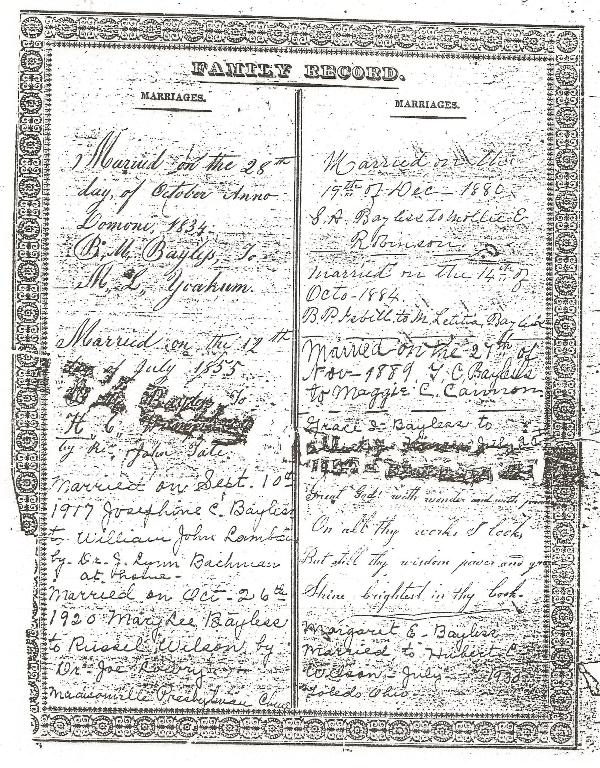 FAMILY RECORD.
MARRIAGES.
Married on the 28th
day of October Anno
Domoni, 1834.
B. M. Bayless, To
M. L. Yoakum.
Married on the 12th
day of July 1855
To
H. C.
by R. John Tate.
Married on Sept. 10th
1917 Josephine C. Bayless
to William John
by Dr. J. Lynn Bachman
at home -
Married on Oct - 26th
1920 Mary Lee Bayless
to Russel Wilson, by
Dr. Joe
Madisonville Presbyterian
MARRIAGES.
Married on the
of Dec - 1880
S. A. Bayless to Mollie E.
Robinson
Married on the 14th of
Octo - 1884
B. P. Isbill to M. Letitia Bayless
Married on the 27th of
Nov - 1889, Bayless
to Maggie C. Cannon
Grace Bayless to
July
Great God! with wonder and with
On all thy works I look,
But still thy wisdom power and
Shine brightest in thy book.
Margaret E. Bayless
Married to Hubert
Wilson - July
Toledo Ohio.